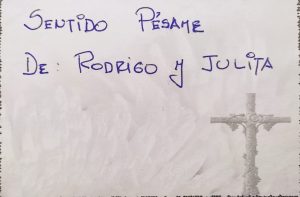 SENTIDO PÉSAME
DE: RODRIGO Y JULITA